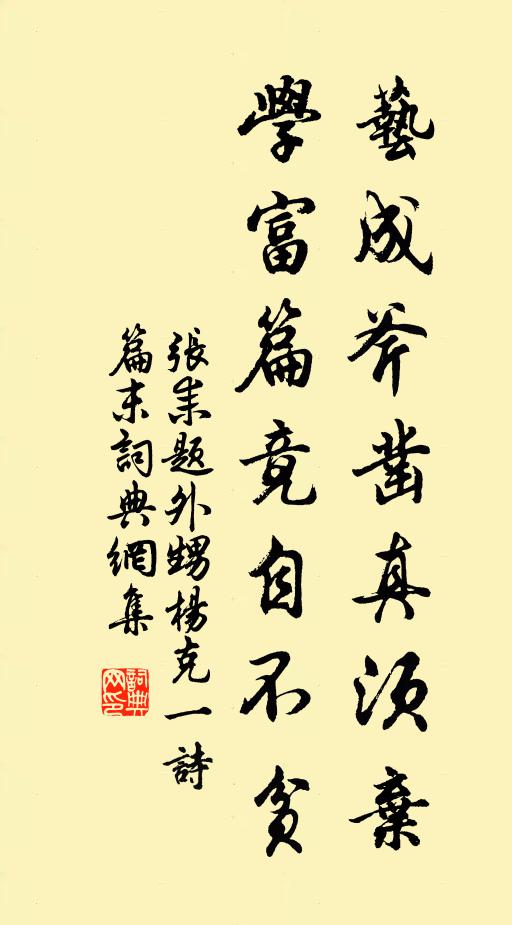 藝成斧凿真須棄
學富篇竟自不貧
張耒題外甥楊克一詩
篇末詞典網集
詞典网印